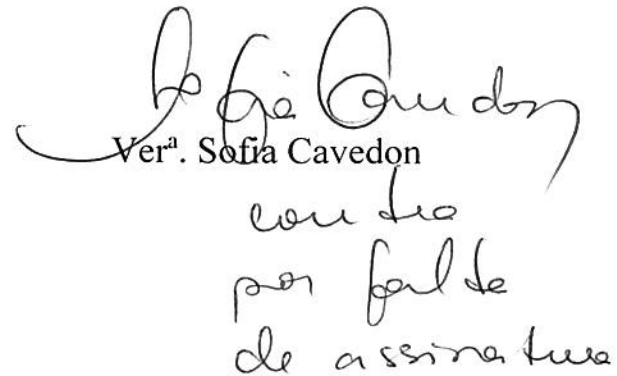 Sofia Cavedon
Verª. Sofia Cavedon
contra
por falta
de assinatura